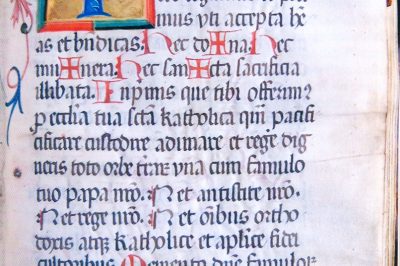 T
mus vti accepta he
as et bndicas. hec dona. hec
munera. hec sancta sacrificia
illabata. Inprimis que tibi offerim⁹
p ecclia tua scta katholica qua pacifi
cificare custodire adunare et rege dig
neris toto orbe terrar vna cum famulo
tuo papa nro. N et antistite nro.
N et rege nro. N et oibus ortho
doxis atq katholice et aplice fidei
cultoribus Memento dne famulor